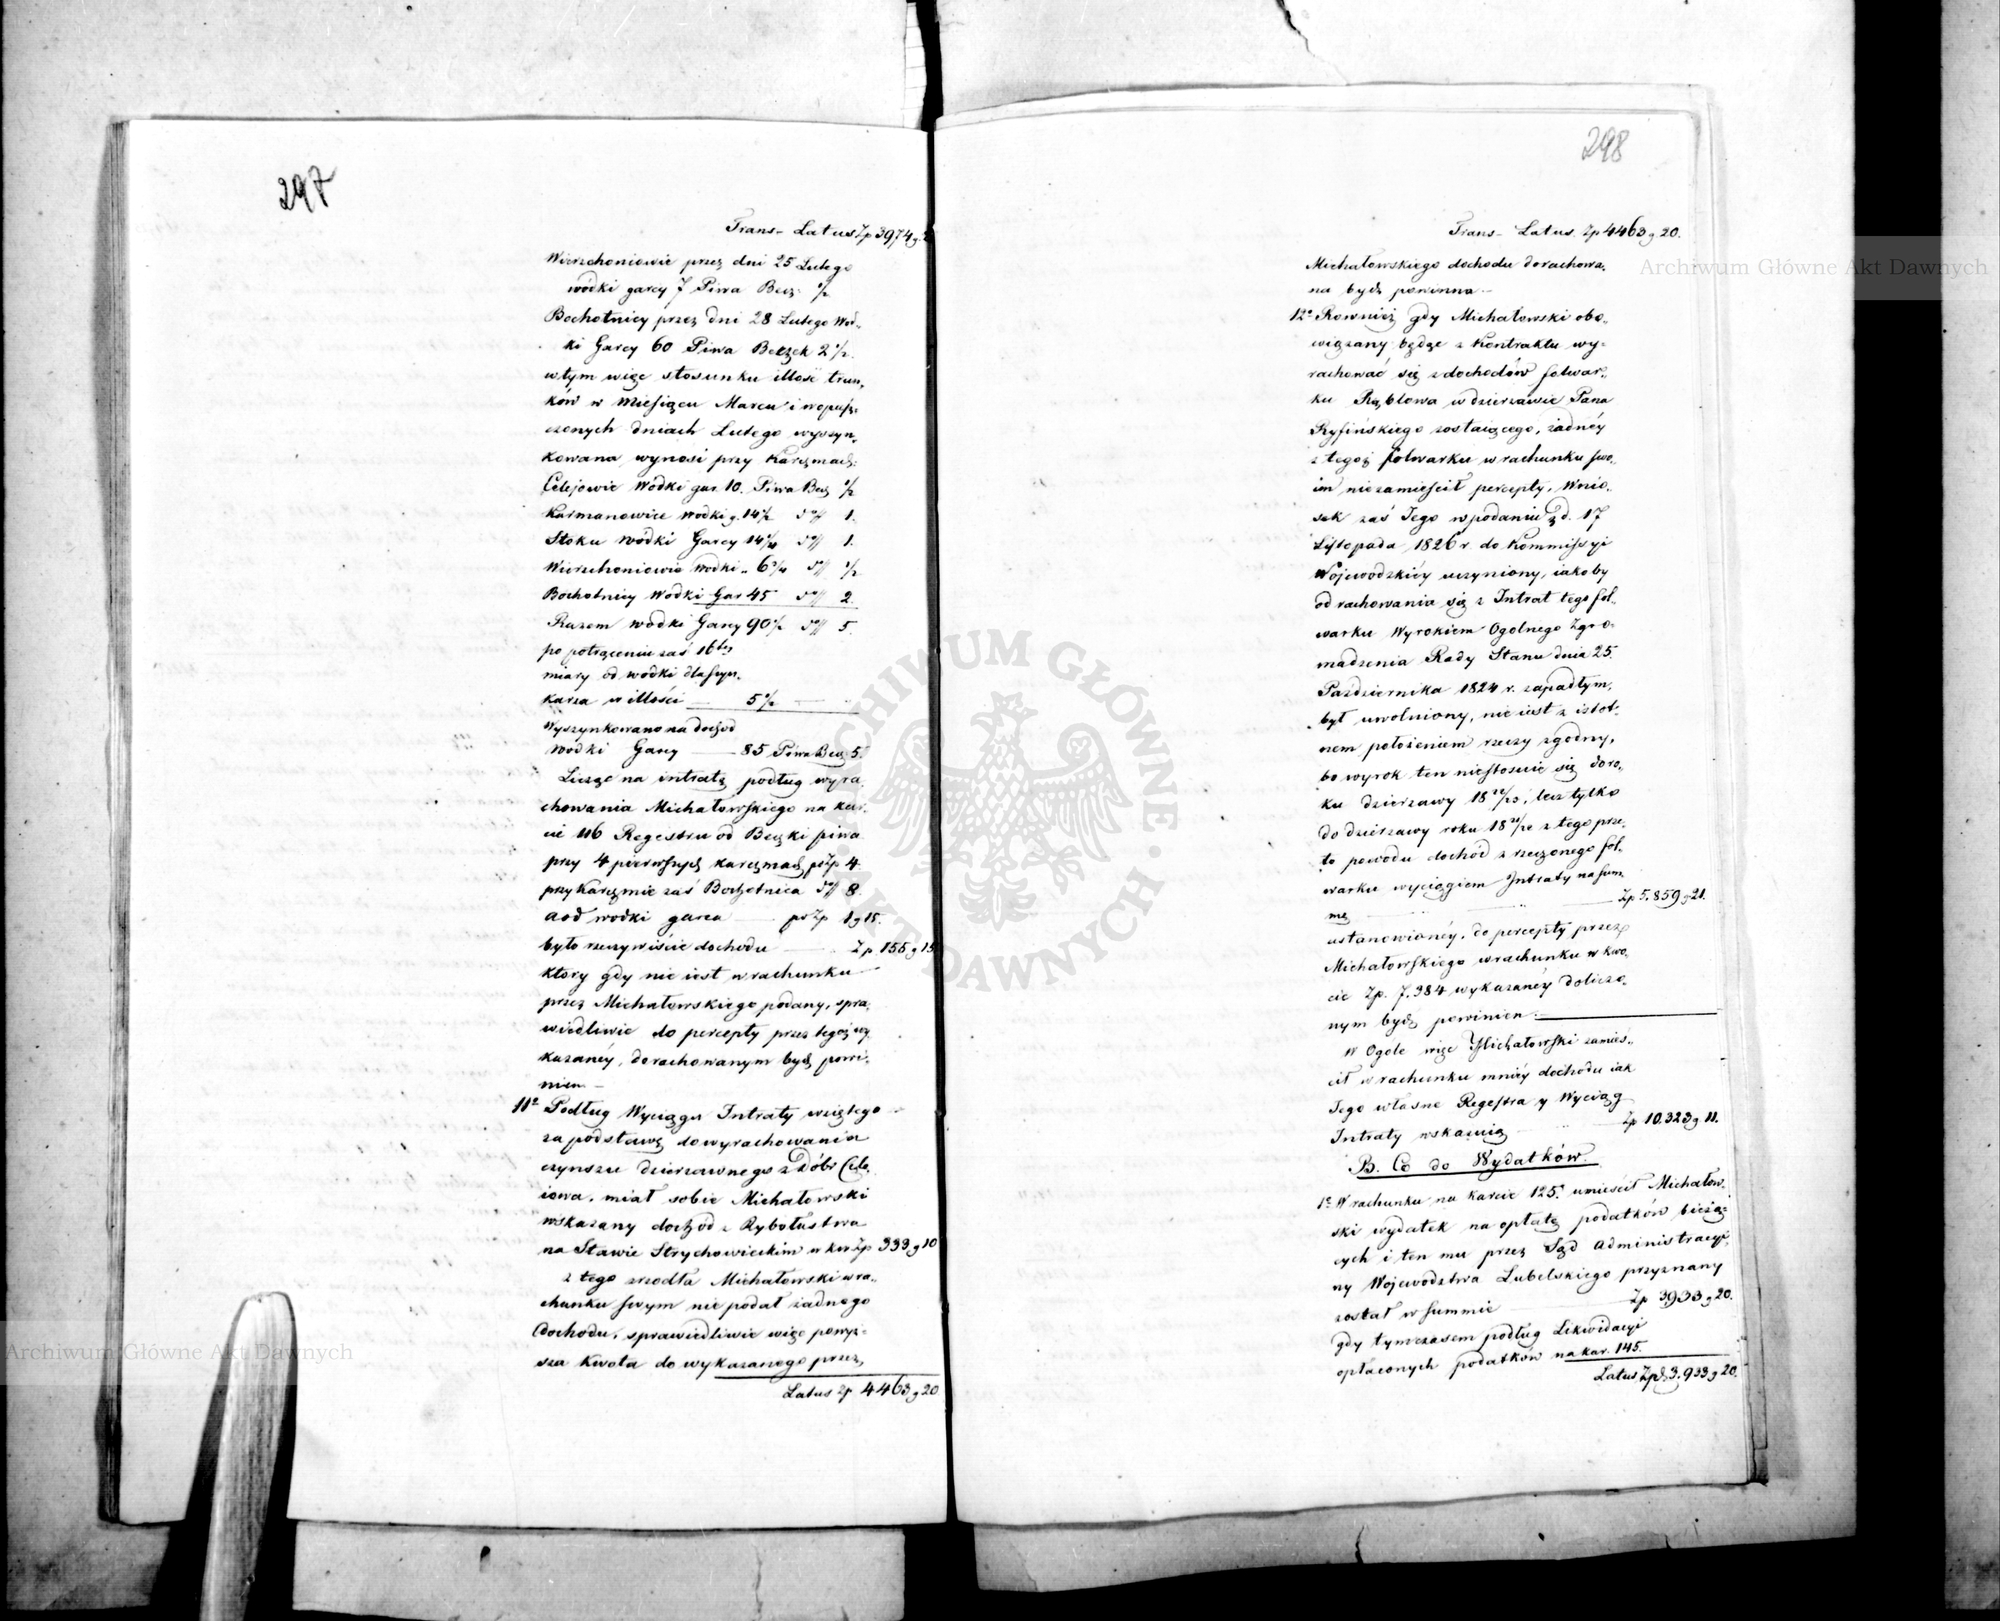 297
Trans- Latus Zp 3974 g.
Wierzchoniowie przez dni 25 Lutego
wódki garcy 7 Piwa Becz: ½
Bochotnicy przez dni 28 Lutego Wod-
ki Garcy 60 Piwa Beczek 2 ½.
w tym więc stosunku illość trun-
ków w Miesiącu Marcu i wopusz-
czonych dniach Lutego wyszyn-
kowana wynosi przy Karczmach:
Celejowie Wódki gar. 10. Piwa Becz ½
Karmanowice Wodki g. 14½ dtt 1.
Stoku Wódki Garcy 14¼ dtt 1.
Wierzchoniowie Wodki „ 6¾ dtt ½
Bochotnicy Wodki Gar 45 dtt 2
Razem wódki Garcy 90½ dtt 5.
po potrąceniu zaś 16tej
miary od wódki dla szyn-
karza w illości — 5½ —
Wyszynkowano na dochod
wodki Garcy — 85 Piwa Becz 5.
Licząc na intratę podług wyra-
chowania Michałowskiego na kar-
cie 116 Regestru od Beczki piwa
przy 4 pierwszych karczmach po Zp 4.
przy Karczmie zaś Bochotnica dtt 8.
a od wodki garca — po Zp 1 g 15.
było rzeczywiście dochodu — Zp 155 g 15
ktory gdy nie iest w rachunku
przez Michałowskiego podany, spra-
wiedliwie do percepty przez tegoż wy-
kazanéy, dorachowanym bydź powi-
nien —
11e Podług Wyciągu Intraty wziętego
za podstawę do wyrachowania
czynszu dzierzawnego z Dóbr Cele-
iowa, miał sobie Michałowski
wskazany dochód z Rybołustwa
na Stawie Strychowieckim w kw Zp 333 g 10
z tego zrzodła Michałowski w ra-
chunku swym nie podał żadnego
dochodu, sprawiedliwie więc powyż-
sza kwota do wykazanego przez
Latus Zp 4463 g 20
298
Trans- Latus. Zp 4463 g 20.
Michałowskiego dochodu dorachowa-
na bydź powinna —
12e Rownież gdy Michałowski obo-
wiązany będąc z Kontraktu wy-
rachować się z dochodów folwar-
ku Rąblowa w dzierzawie Pana
Ryfińskiego zostaiącego, żadnéy
z tegoż folwarku w rachunku swo-
im niezamieścił percepty, Wnio-
sek zaś Jego w podaniu z d. 17
Listopada 1826 r. do Kommissyi
Wojewodzkiéy uczyniony, iakoby
od rachowania się z Intrat tego fol-
warku Wyrokiem Ogolnego Zgro-
madzenia Rady Stanu dnia 25
Października 1824 r. zapadłym,
był uwolniony, nie iest z istot-
nem położeniem rzeczy zgodny,
bo wyrok ten niestosuie się do ro-
ku dzierzawy 18 22/23, lecz tylko
do dzierzawy roku 18 21/22 z tego prze-
to powodu dochód z rzeczonego fol-
warku wyciągiem Intraty na sum-
mę — Zp 5.859 g 21.
ustanowionéy, do percepty przez
Michałowskiego w rachunku w kwo-
cie Zp. 7.384 wykazanéy doliczo-
nym bydź powinien. —
W Ogóle więc Michałowski zamieś-
cił w rachunku mniéy dochodu iak
Jego własne Regestra y Wyciąg
Intraty wskazuią — Zp 10.323 g 11.
B. Co do Wydatków.
1e W rachunku na karcie 125. umieścił Michałow-
ski wydatek na opłatę podatków bieżą-
cych i ten mu przez Sąd Administracyi-
ny Wojewodztwa Lubelskiego przyznany
został w summie — Zp 3933 g 20.
gdy tymczasem podług Likwidacyi
opłaconych podatków na kar. 145.
Latus Zp 3.933 g 20.
Archiwum Główne Akt Dawnych
Archiwum Główne Akt Dawnych
ARCHIWUM GŁÓWNE AKT DAWNYCH